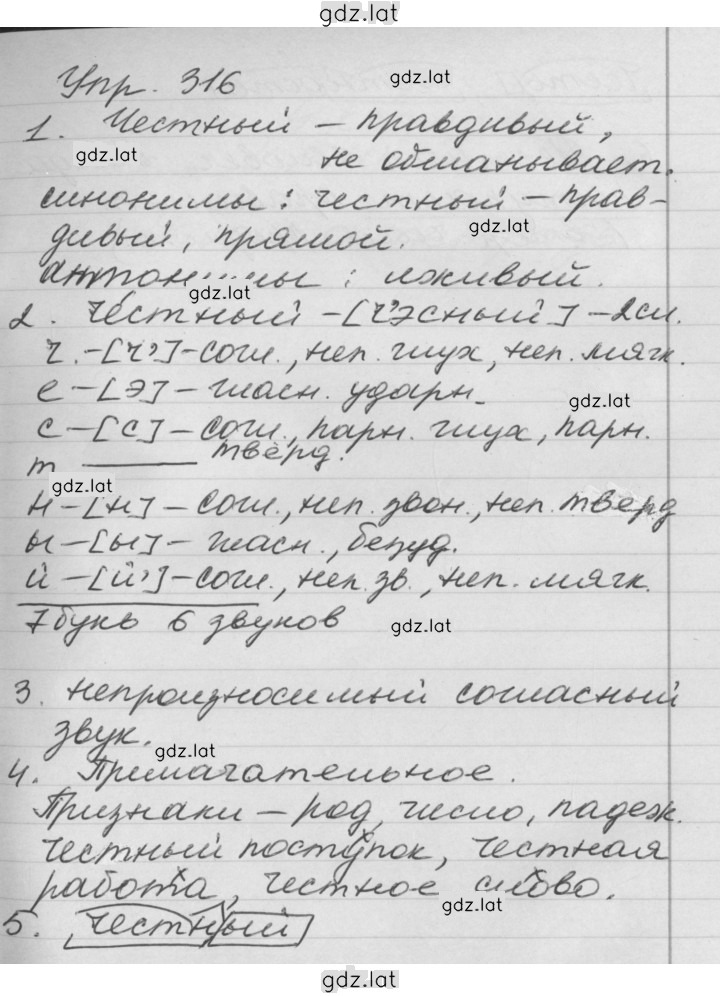 gdz.lat
Упр. 316
gdz.lat
1. Честный – правдивый,
gdz.lat
не обманывает.
синонимы: честный – прав-
gdz.lat
дивый, прямой.
антонимы: лживый.
gdz.lat
2. Честный – [ч'эсный'] – 2сл.
ч. – [ч'] – согл., неп. глух, неп. мягк.
е – [э] – гласн. ударн.
gdz.lat
с – [с] – согл., парн. глух, парн.
т ——— тверд.
gdz.lat
н – [н] – согл., неп. звон., неп. тверд
ы – [ы] – гласн., безуд.
й – [й'] – согл., неп. зв., неп. мягк.
7 букв 6 звуков
gdz.lat
3. непроизносимый согласный
звук.
gdz.lat
4. Прилагательное.
Признаки – род, число, падеж.
честный поступок, честная
работа, честное слово.
gdz.lat
5. честный
gdz.lat